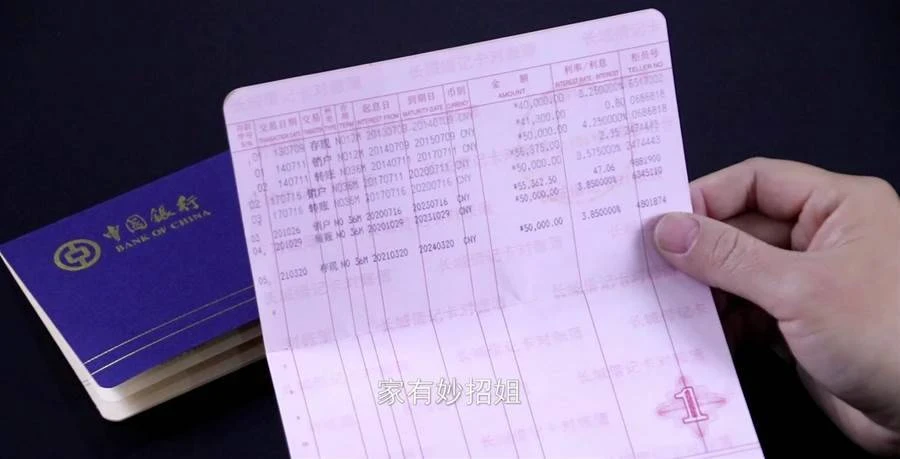 中国银行
BANK OF CHINA
长城借记卡对账簿
交易日期
TRANSACTION DATE
交易
存期
TERM
起息日
INTEREST FROM
到期日
MATURITY DATE
币别
CURRENCY
金 额
AMOUNT
利率/利息
INTEREST RATE · INTEREST
柜员号
TELLER NO
130709 存现 NO12M 20130709 20140709 CNY ¥40,000.00 3.250000%
140711 销户 NO12M 20140709 20150709 CNY ¥41,300.00 0.80 0686818
140711 转账 NO36M 20140711 20170711 CNY ¥50,000.00 4.250000% 0686818
170716 销户 NO36M 20170711 20200711 CNY 2.35 2474443
170716 转账 NO36M 20170716 20200716 CNY ¥50,000.00 3.575000% 2474443
201026 销户 NO 36M 20200716 20230716 CNY ¥55,362.50 47.06 9881900
201029 NO 36M 20201029 20231029 CNY ¥50,000.00 3.850000%
05 210320 存现 NO 36M 20210320 20240320 CNY ¥50,000.00 3.850000% 4801874
长城借记卡对账簿
1
家有妙招姐